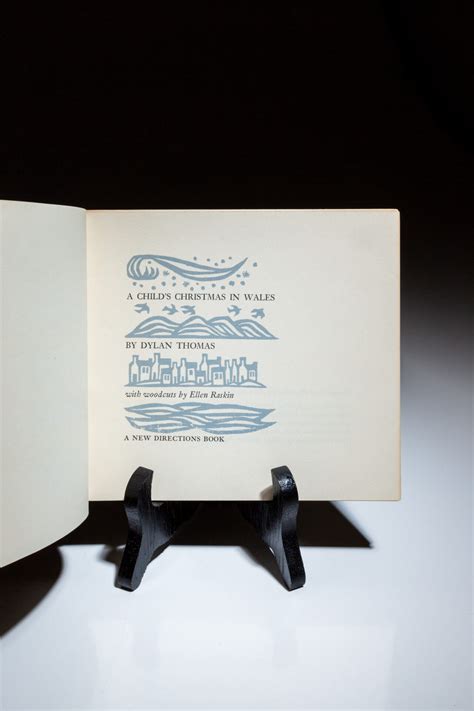 A CHILD'S CHRISTMAS IN WALES
BY DYLAN THOMAS
with woodcuts by Ellen Raskin
A NEW DIRECTIONS BOOK